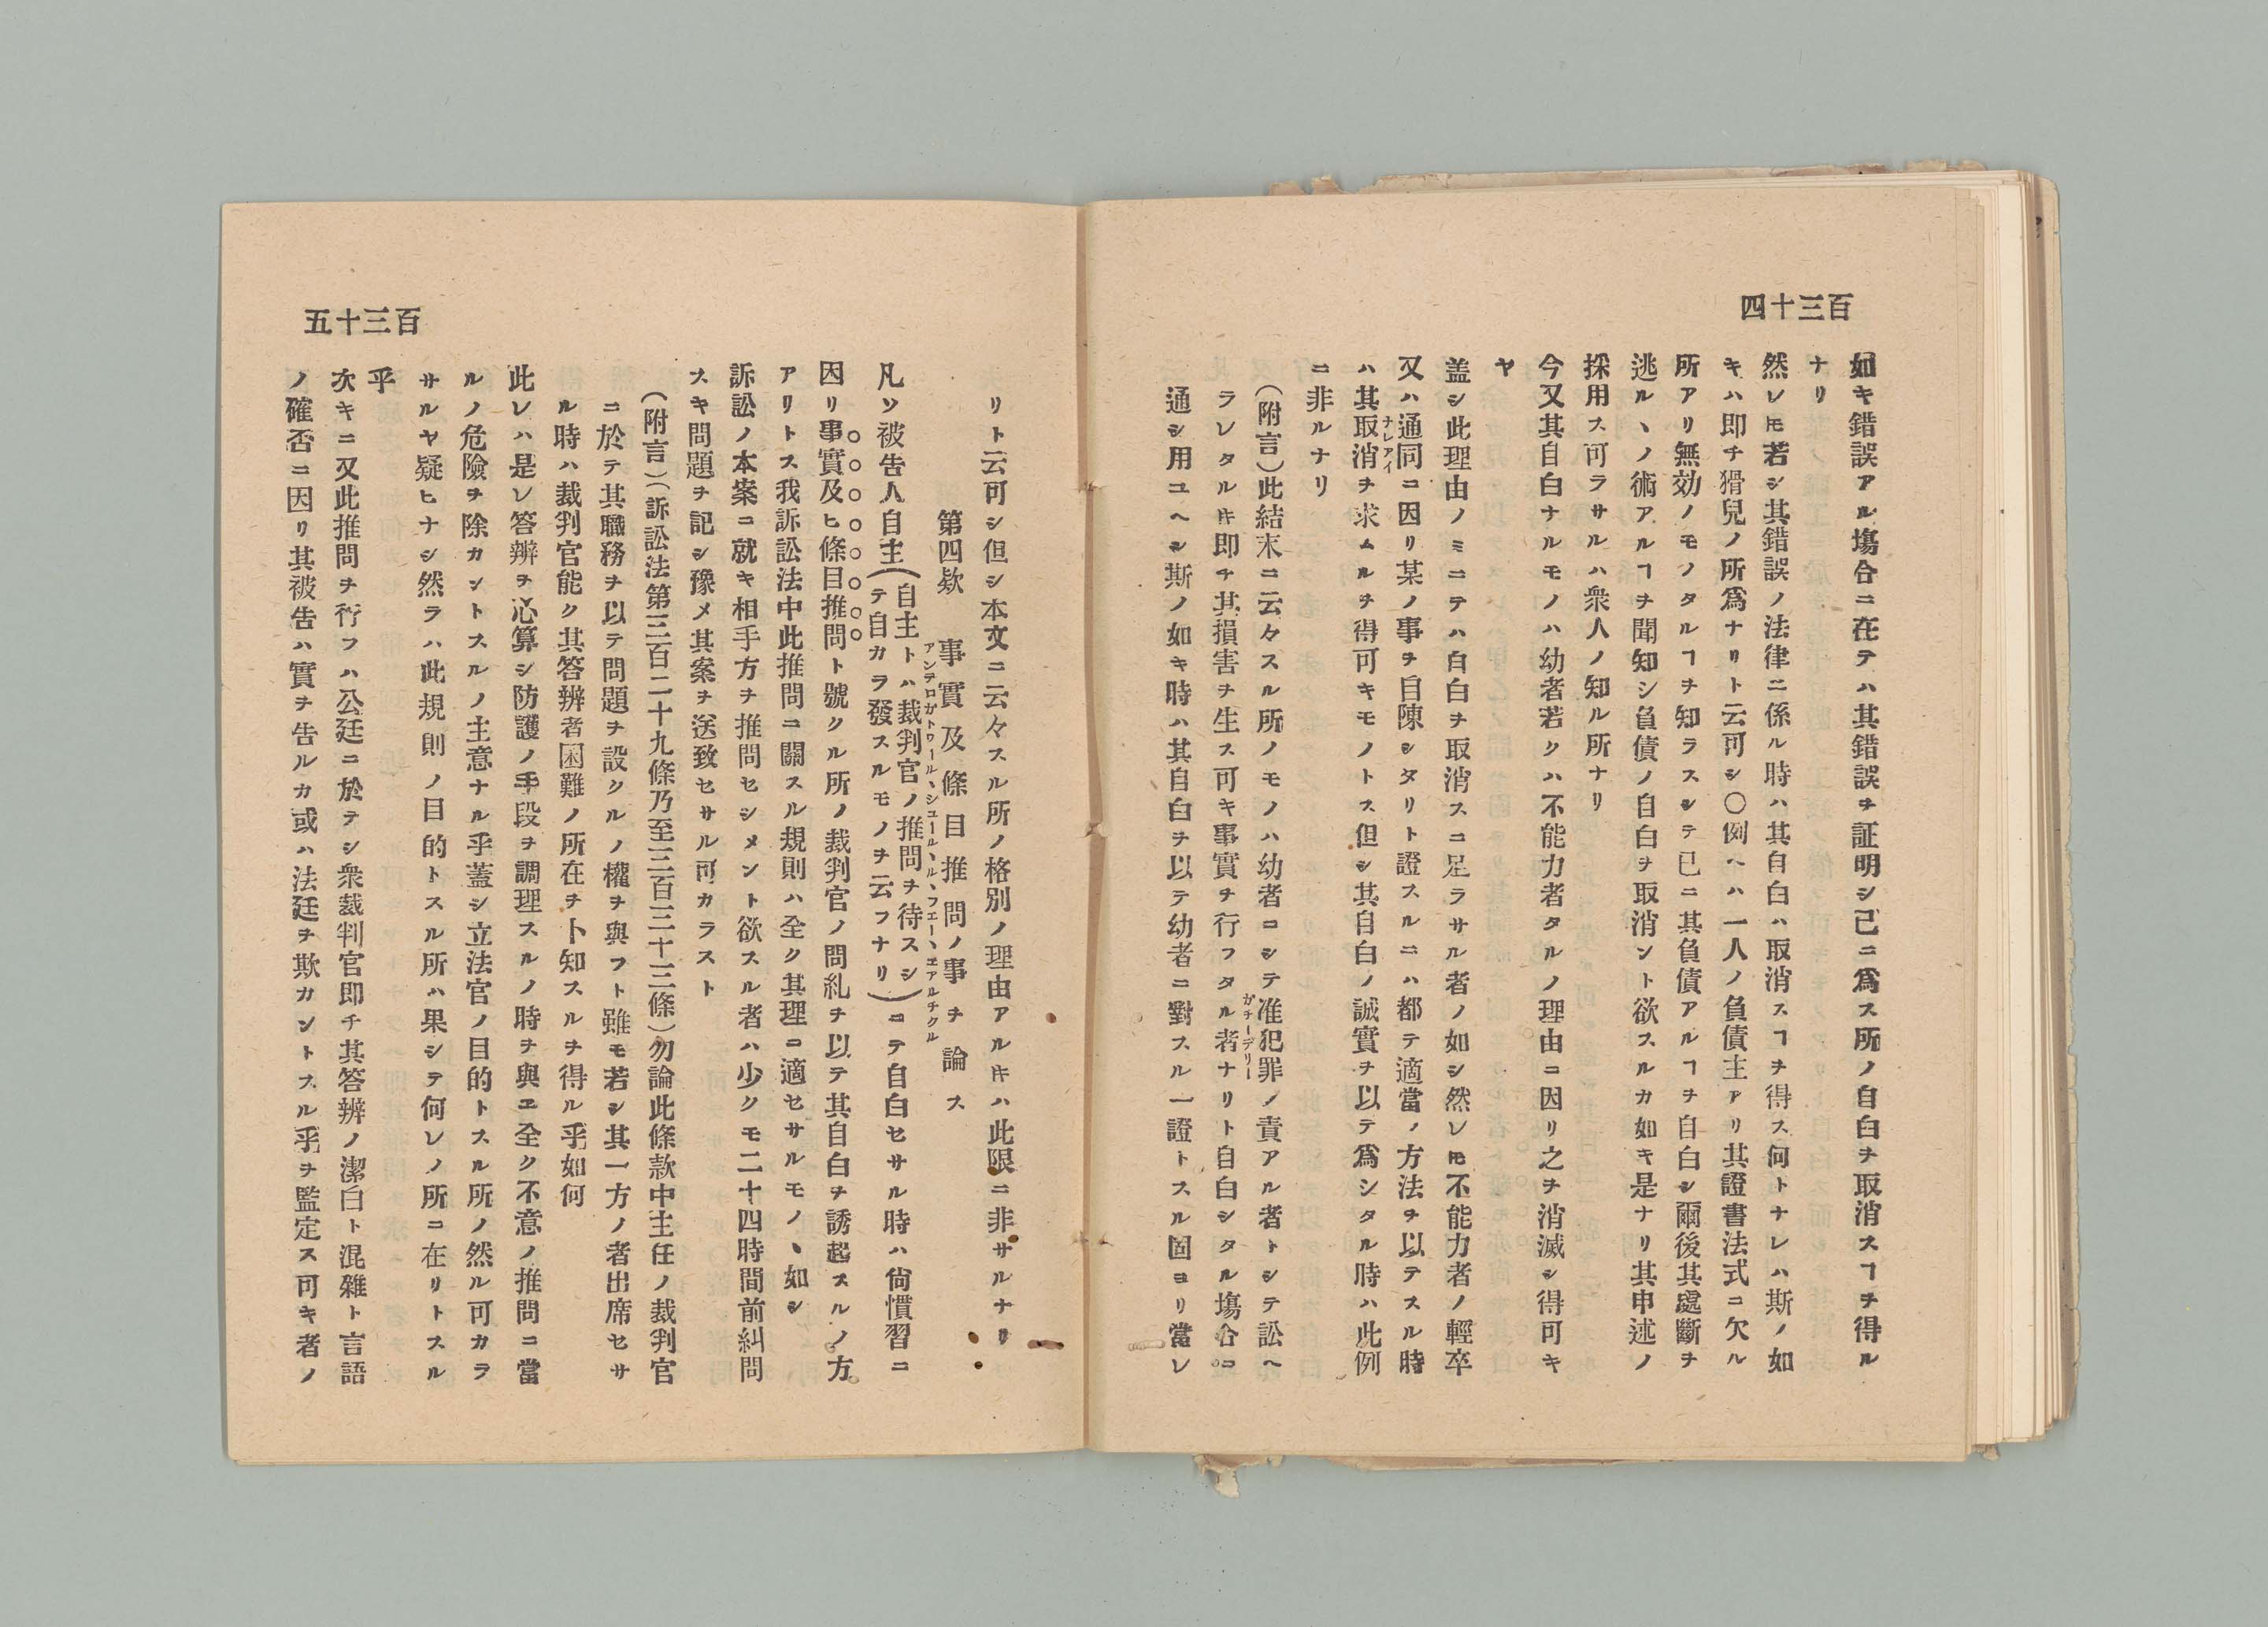 百三十四
如キ錯誤アル塲合ニ在テハ其錯誤ヲ証明シ已ニ爲ス所ノ自白ヲ取消スヿヲ得ル
ナリ
然レ𪜈若シ其錯誤ノ法律ニ係ル時ハ其自白ハ取消スヿヲ得ス何トナレハ斯ノ如
キハ即チ猾兒ノ所爲ナリト云可シ〇例ヘハ一人ノ負債主アリ其證書法式ニ欠ル
所アリ無効ノモノタルヿヲ知ラスシテ已ニ其負債アルヿヲ自白シ爾後其處斷ヲ
逃ルヽノ術アルヿヲ聞知シ負債ノ自白ヲ取消ント欲スルカ如キ是ナリ其申述ノ
採用ス可ラサルハ衆人ノ知ル所ナリ
今又其自白ナルモノハ幼者若クハ不能力者タルノ理由ニ因リ之ヲ消滅シ得可キ
ヤ
盖シ此理由ノミニテハ白白ヲ取消スニ足ラサル者ノ如シ然レ𪜈不能力者ノ輕卒
又ハ通同ナレアイニ因リ某ノ事ヲ自陳シタリト證スルニハ都テ適當ノ方法ヲ以テスル時
ハ其取消ヲ求ムルヲ得可キモノトス但シ其自白ノ誠實ヲ以テ爲シタル時ハ此例
ニ非ルナリ
(附言)此結末ニ云々スル所ノモノハ幼者ニシテ准犯罪カチーデリーノ責アル者トシテ訟ヘ
ラレタルキ即チ其損害ヲ生ス可キ事實ヲ行フタル者ナリト自白シタル塲合ニ
通シ用ユヘシ斯ノ如キ時ハ其自白ヲ以テ幼者ニ對スル一證トスル固ヨリ當レ
百三十五
リト云可シ但シ本文ニ云々スル所ノ格別ノ理由アルキハ此限ニ非サルナリ
第四欵 事實及條目推問ノ事ヲ論ス
アンテロガトワール、シユール、ル、フエー、エアルチクル
凡ソ被告人自主(自主トハ裁判官ノ推問ヲ待スシテ自カラ發スルモノヲ云フナリ)ニテ自白セサル時ハ尙慣習ニ
因リ事實及ヒ條目推問ト號クル所ノ裁判官ノ問糺ヲ以テ其自白ヲ誘起スルノ方
アリトス我訴訟法中此推問ニ關スル規則ハ全ク其理ニ適セサルモノヽ如シ
訴訟ノ本案ニ就キ相手方ヲ推問セシメント欲スル者ハ少クモ二十四時間前糾問
スキ問題ヲ記シ豫メ其案ヲ送致セサル可カラスト
(附言)(訴訟法第三百二十九條乃至三百三十三條)勿論此條款中主任ノ裁判官
ニ於テ其職務ヲ以テ問題ヲ設クルノ權ヲ與フト雖モ若シ其一方ノ者出席セサ
ル時ハ裁判官能ク其答辨者困難ノ所在ヲ卜知スルヲ得ル乎如何
此レハ是レ答辨ヲ心算シ防護ノ手段ヲ調理スルノ時ヲ與エ全ク不意ノ推問ニ當
ルノ危險ヲ除カントスルノ主意ナル乎蓋シ立法官ノ目的トスル所ノ然ル可カラ
サルヤ疑ヒナシ然ラハ此規則ノ目的トスル所ハ果シテ何レノ所ニ在リトスル
乎
次キニ又此推問ヲ行フハ公廷ニ於テシ衆裁判官即チ其答辨ノ潔白ト混雜ト言語
ノ確否ニ因リ其被告ハ實ヲ告ルカ或ハ法廷ヲ欺カントスル乎ヲ監定ス可キ者ノ